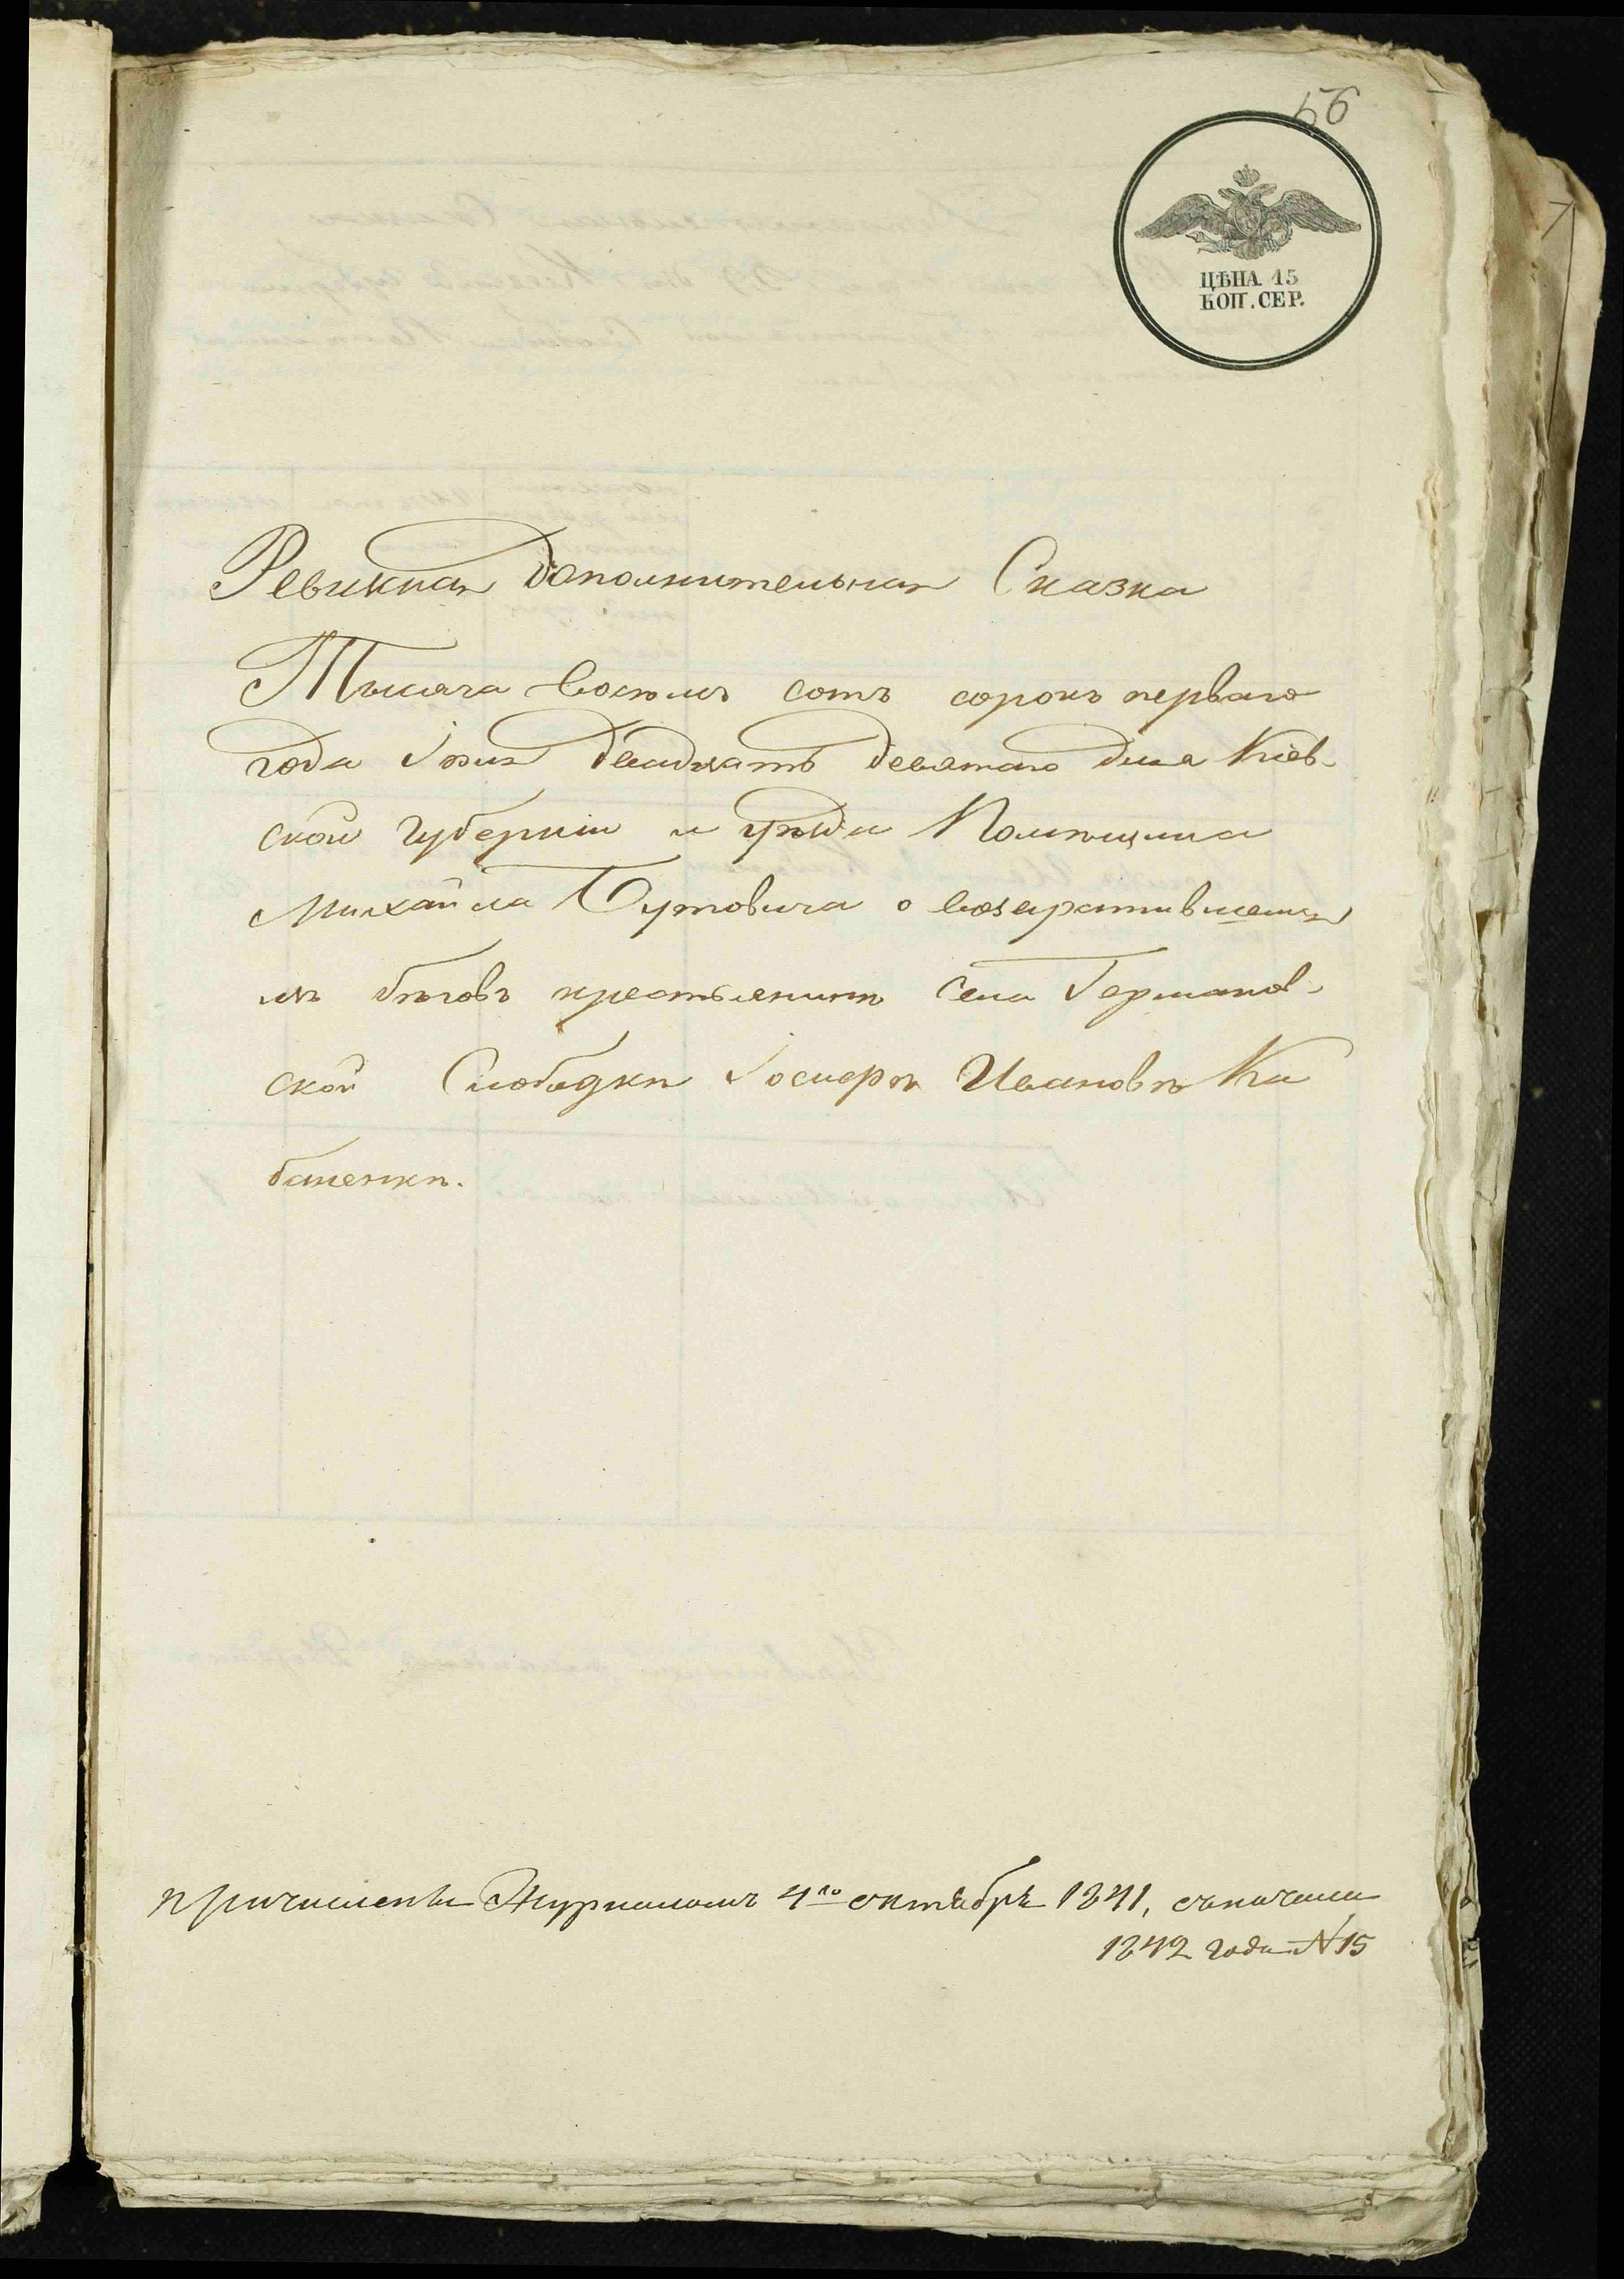 56
ЦѢНА 15
КОП. СЕР.
Ревижная дополнительная Сказка
Тысяча восемъ сотъ сорокъ перваго
года Іюня двадцать девятаго дня Кіев-
ской губерніи и уѣзда Помѣщика
Михайла Бутовича о возвратившемся
изъ бѣговъ крестьянинѣ села Германов-
ской Слободки Іосифѣ Ивановѣ Ка
баненкѣ.
причисленъ Журналомъ 4го октября 1841, съ начала
1842 года № 15